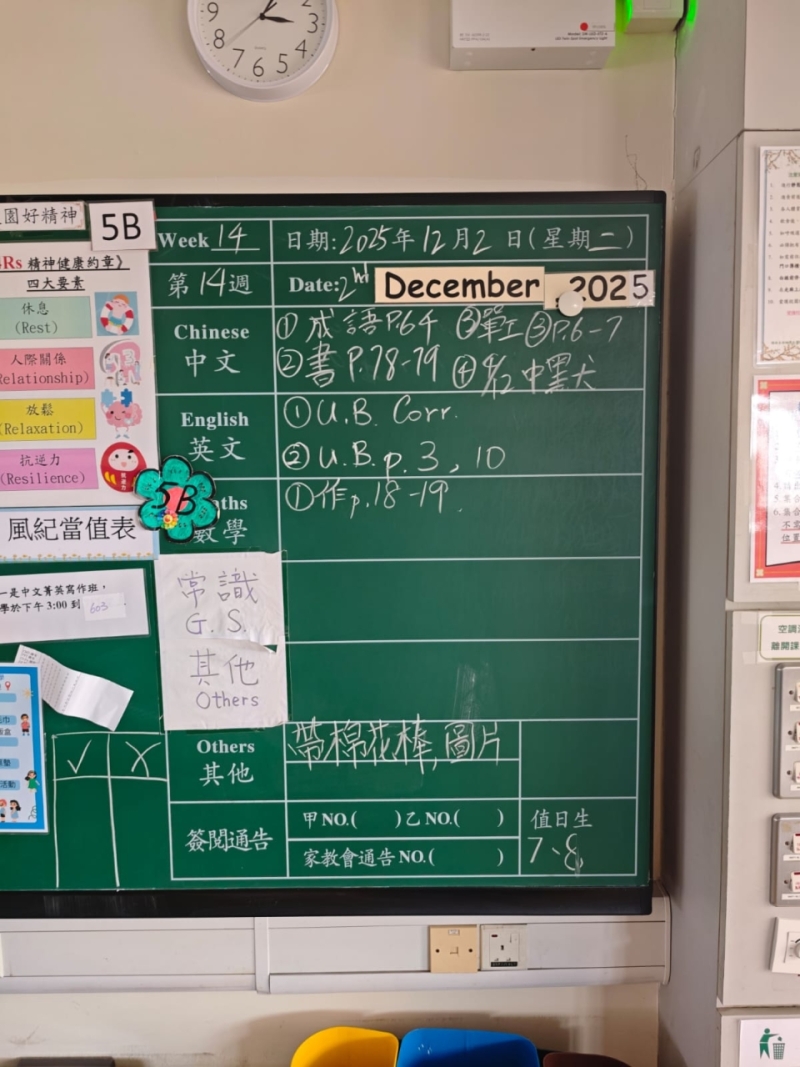 園好精神
5B
Rs 精神健康約章》
四大要素
休息
(Rest)
人際關係
Relationship)
放鬆
(Relaxation)
抗逆力
(Resilience)
5B
風紀當值表
一是中文菁英寫作班，
學於下午 3:00 到 603
Week 14
日期:2025年12月2日(星期二)
第14週
Date:2nd December 2025
Chinese
中文
① 成語P.64 ③單工③P.6-7
②書P.78-79 ④
English
英文
① U.B. Corr.
② U.B. p. 3, 10
ths
數學
①作p.18-19.
常識
G.S.
其他
Others
Others
其他
帶棉花棒,圖片
簽閱通告
甲NO.( )乙NO.( )
家教會通告NO.( )
值日生
7、8
✓ ✗
空調
離開課